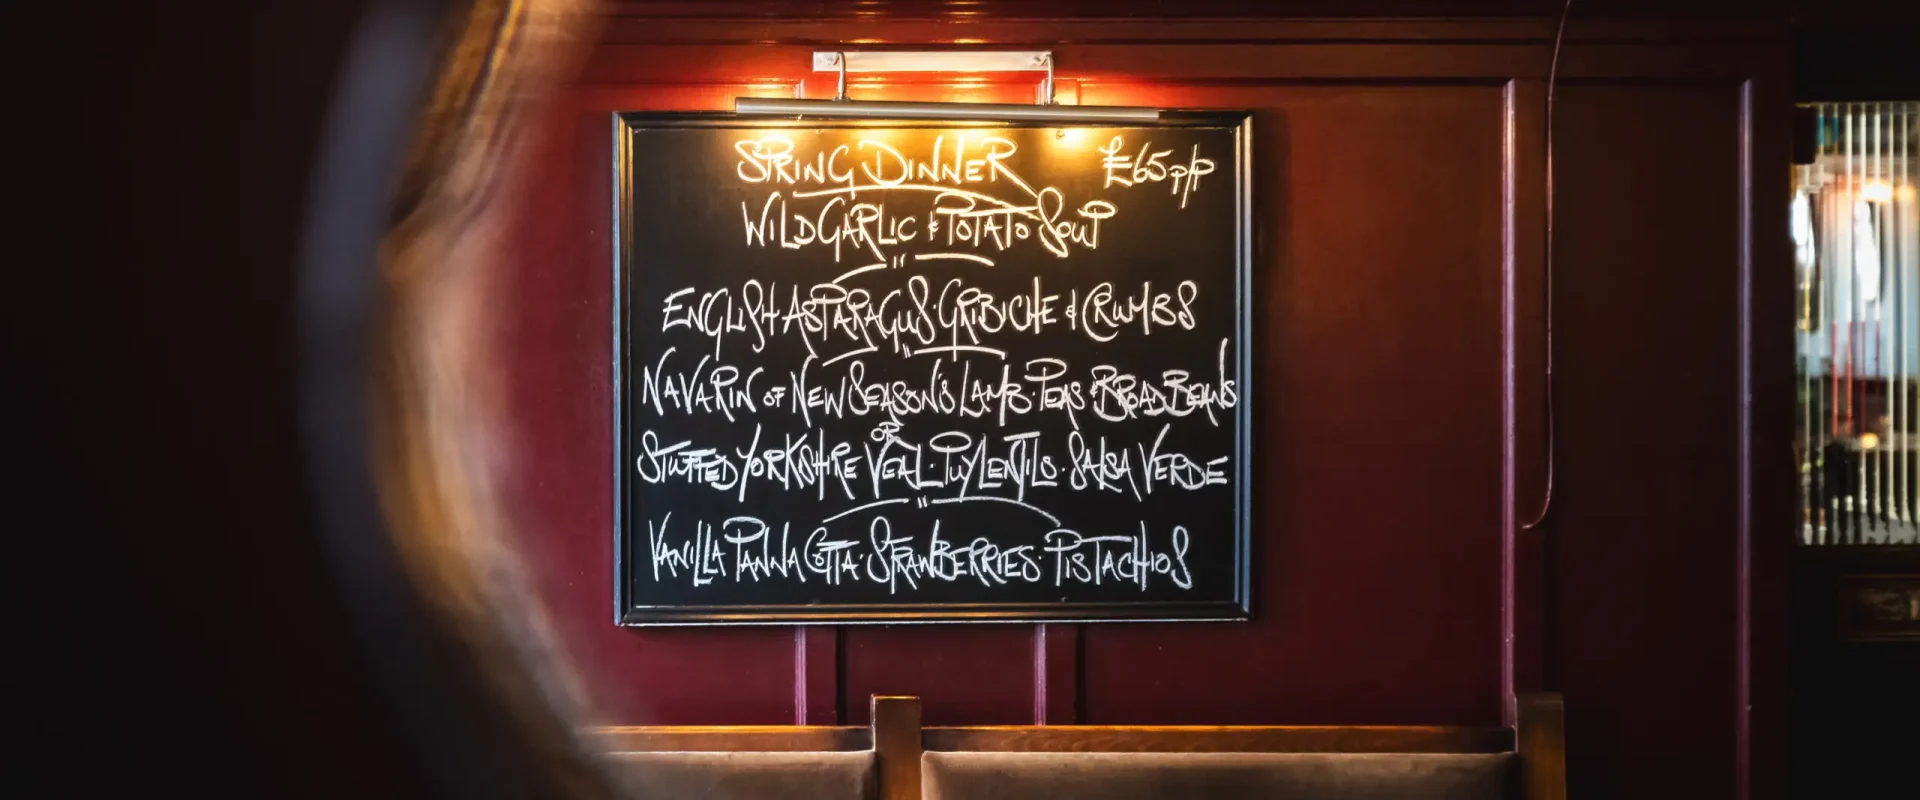 SPRING DINNER £65 p/p
WILD GARLIC & POTATO SOUP
"
ENGLISH ASPARAGUS · GRIBICHE & CRUMBS
"
NAVARIN OF NEW SEASON'S LAMB · PEAS & BROAD BEANS
OR
STUFFED YORKSHIRE VEAL · PUY LENTILS · SALSA VERDE
"
VANILLA PANNA COTTA · STRAWBERRIES · PISTACHIOS